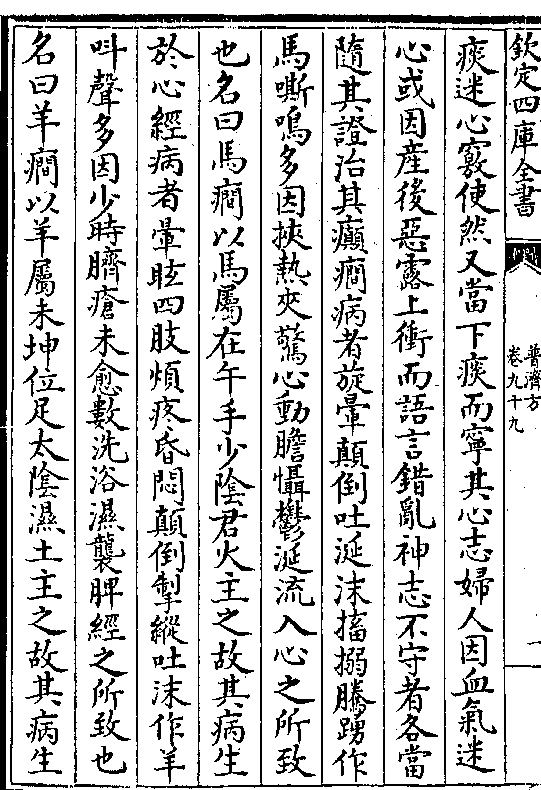 欽定四庫全書
普濟方
卷九十九
一
痰迷心竅使然又當下痰而寧其心志婦人因血氣迷
心或因産後惡露上衝而語言錯亂神志不守者各當
隨其證治其癲癇病者旋暈顛倒吐涎沫搐搦騰踴作
馬嘶鳴多因挾熱夾驚心動膽懾鬱涎流入心之所致
也名曰馬癇以馬屬在午手少陰君火主之故其病生
於心經病者暈眩四肢煩疼昏悶顛倒掣縱吐沫作羊
呌聲多因少時臍瘡未愈數洗浴濕襲脾經之所致也
名曰羊癇以羊屬未坤位足太陰濕土主之故其病生